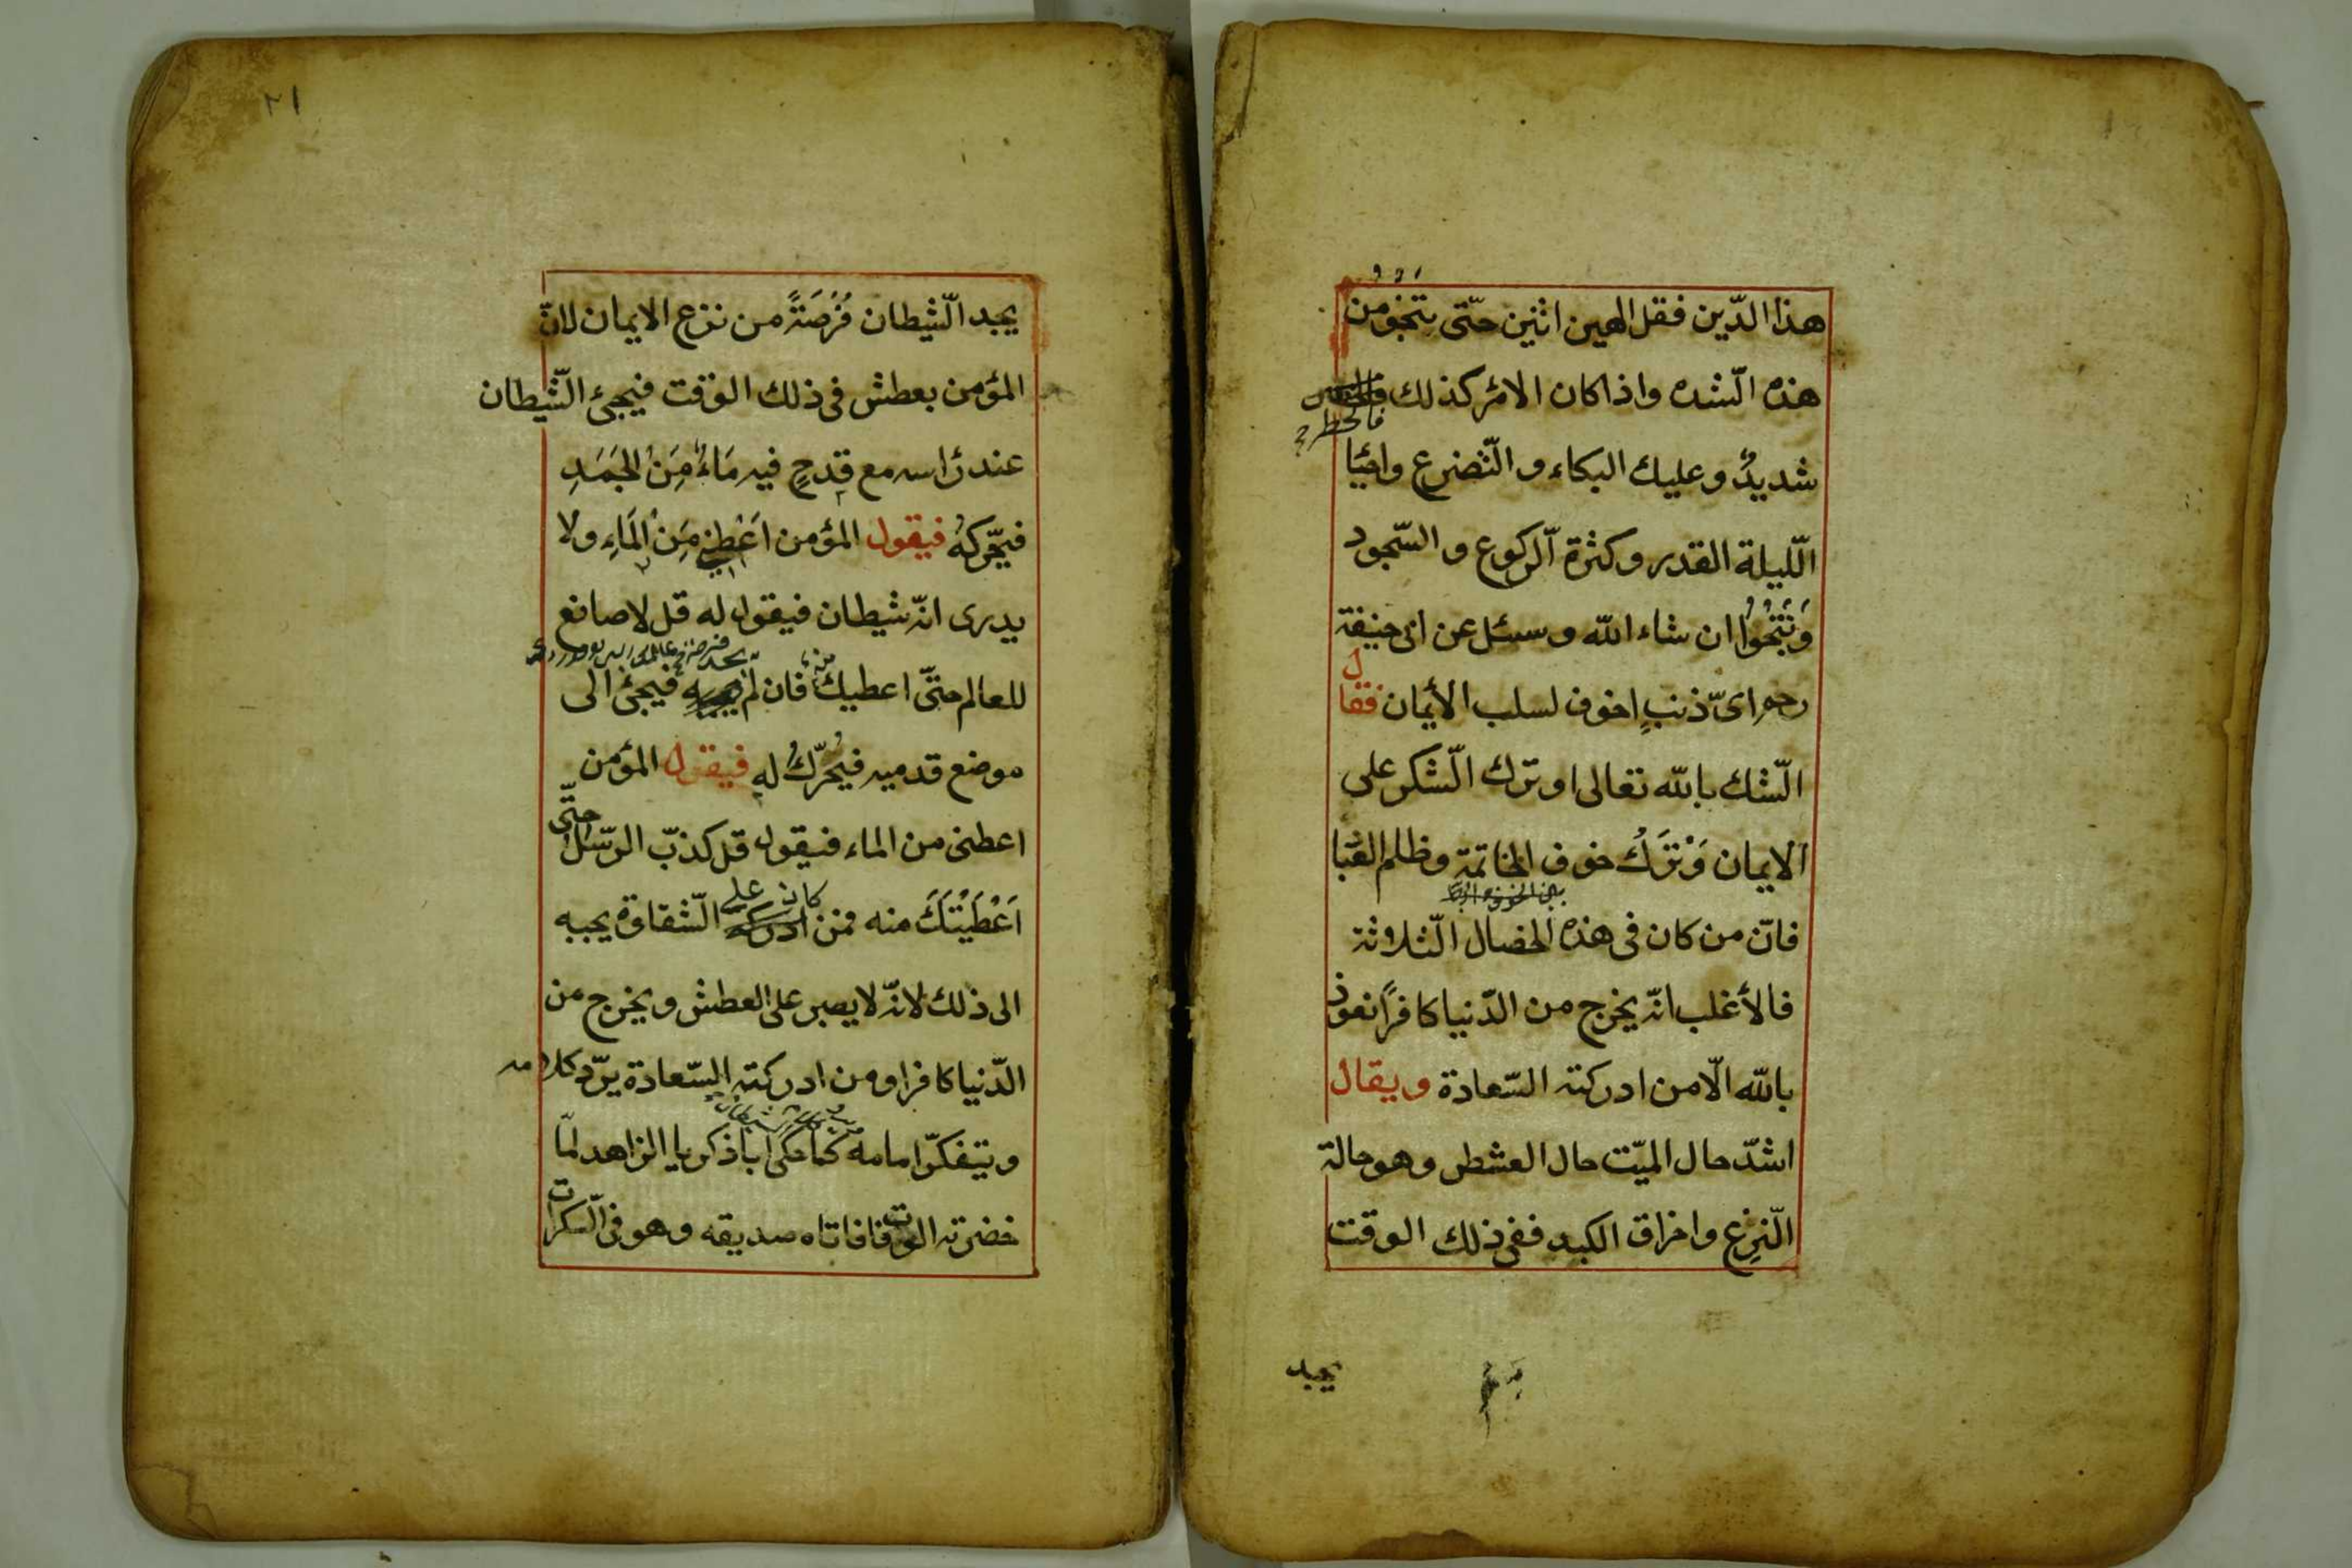 هذا الدّين فقل الهين اثنين حتّى تنجو من
هذه الشّده واذا كان الامر كذلك
فالخطر
شديدٌ وعليك البكاء و التّضرع واحيا
اللّيلة القدر وكثرة الركوع و السّجود
وَنَنْجُوا ان شاء الله و سئل عن ابى حنيفة
رحم اىّ ذنبٍ اخوف لسلب الأيمان فقال
الشّك بالله تعالى او ترك الشّكر على
الايمان وَتَرْكُ خوف الخاتمة وظلم العبا
فانّ من كان فى هذه الخصال الثّلاثة
فالأغلب انّه يخرج من الدّنيا كافرًا نعوذ
بالله الّا من ادركته السّعادة ويقال
اشدّ حال الميّت حال العشطر وهو حالة
النّزع واحراق الكبد ففى ذلك الوقت
يجد
٢١
يجد الشّيطان فُرْصَةً من نزع الايمان لانّ
المؤمن بعطش فى ذلك الوقت فيجئ الشّيطان
عند رأسه مع قدحٍ فيه مَاءٌ مِنَ الجَمَدِ
فيحّركهُ فيقول المؤمن اَعْطِنِى مِنَ الْمَاءِ ولا
يدرى انّه شيطان فيقول له قل لا صانع
للعالم حتّى اعطيك منه فان لم فيجئ الى
موضع قدميه فيُحَرّكُ له فيقول المؤمن
اعطنى من الماء فيقول قل كذبّ الرّسل حتّى
اَعْطَيْتَكَ منه فمن كان على الشّقاوة يجبه
الى ذلك لانّه لا يصبر على العطش ويخرج من
الدّنيا كافرا ومن ادركته السّعادة يردّ كلامه
ويتفكّر امامه كما حكى اباذكريا الزاهد لمّا
حضرته الموت فافاتاه صديقه وهو فى السّكرات